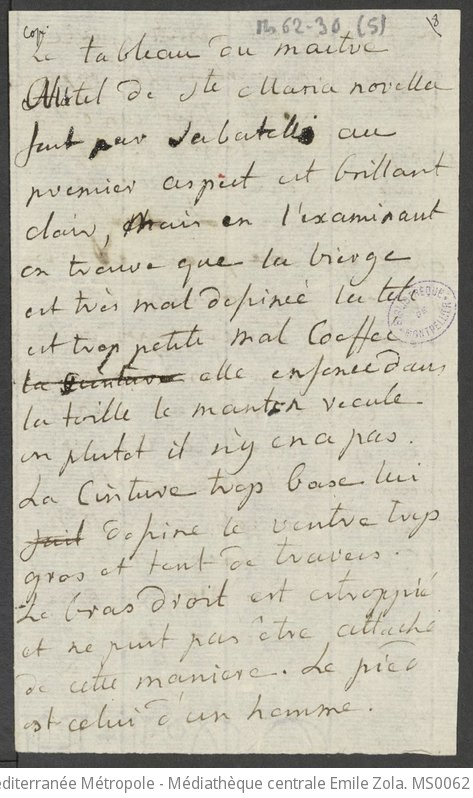 Copi
ms 62-30 (5)
8
Le tableau du maitre
Autel de Ste Maria novella
fait par Sabatelli au
premier aspect est brillant
clair, mais en l'examinant
on trouve que la vierge
est très mal dessineé la tete
est trop petite mal Coeffee
la Ceinture elle enfonceé dans
la toille le menton recule
ou plutot il n'y en a pas.
La Cinture trop basse lui
fait dessine le ventre trop
gros et tout de travers.
Le bras droit est estroppié
et ne peut pas être attaché
de cette maniere. Le pied
est celui d'un homme.
diterranée Métropole - Médiathèque centrale Emile Zola. MS0062